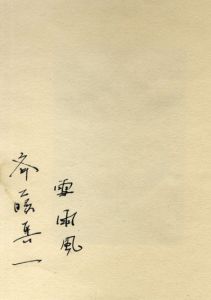 雪雨風
斎藤真一